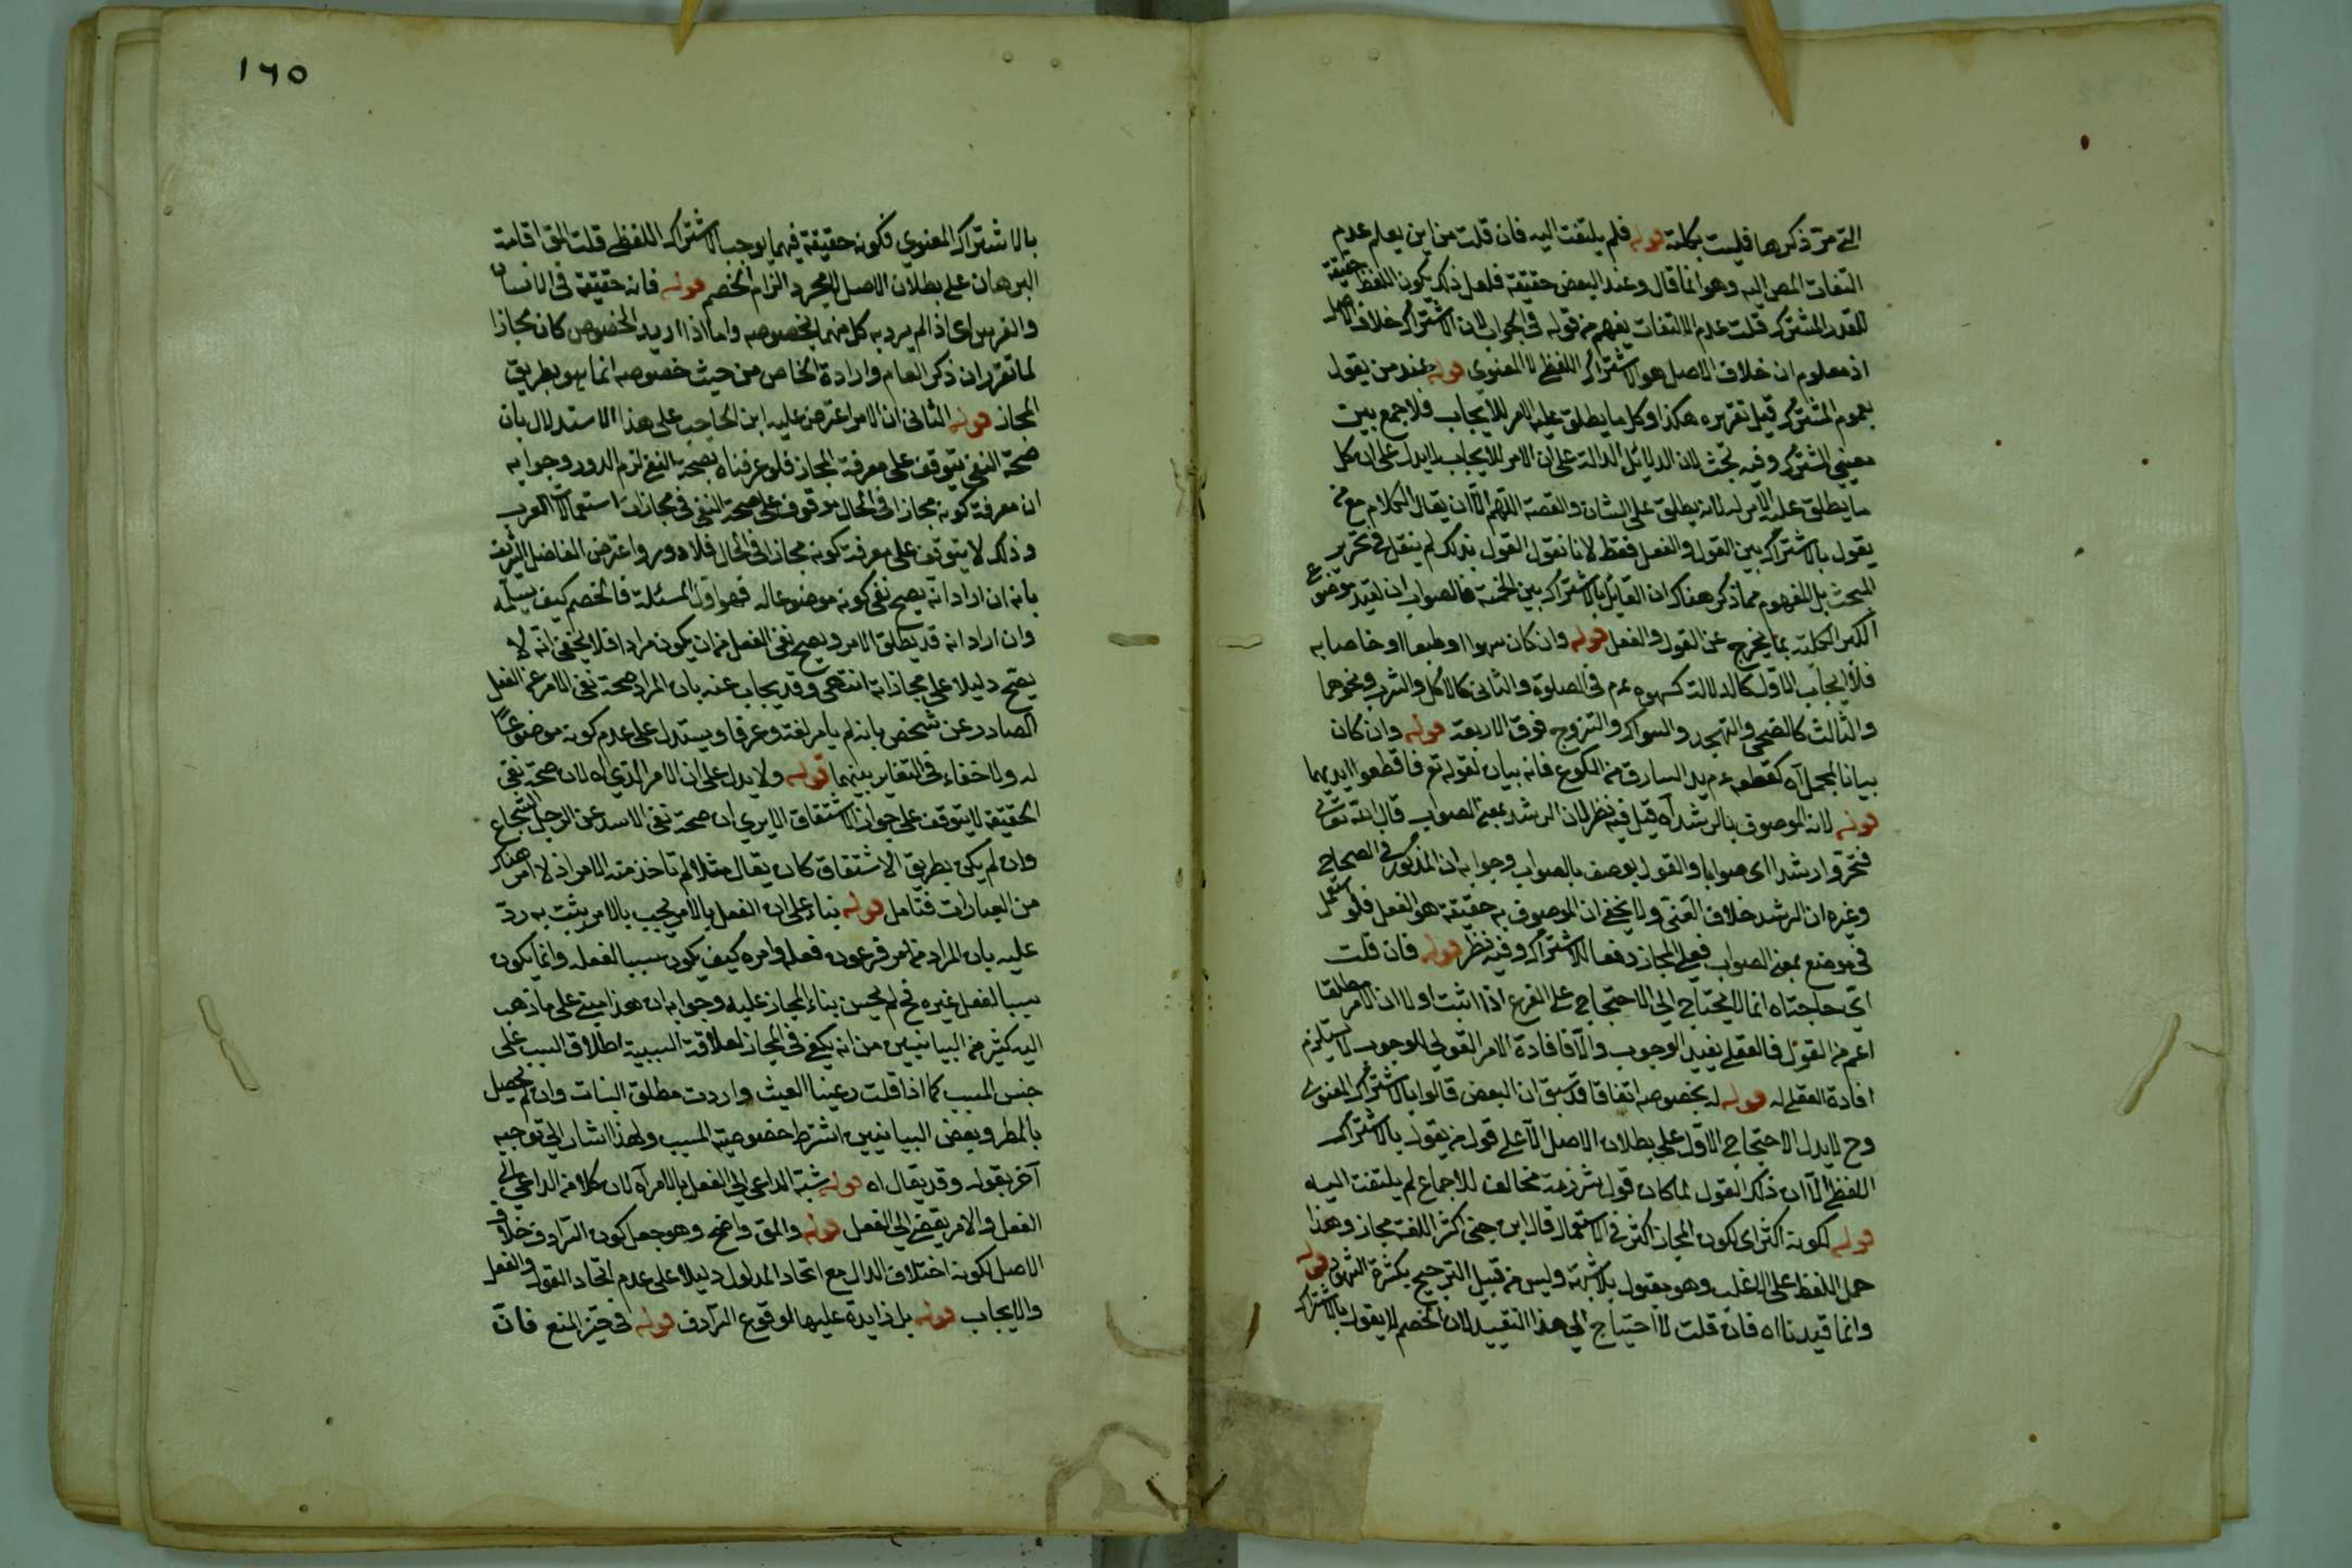 التى مرّ ذكرها فليست بكلية قوله فلم يلتفت اليه فان قلت من اين يعلم عدم
التفات المص اليه وهو انما قال وعند البعض حقيقة فلعل ذلك يكون اللفظ حقيقة
للقدر المشترك قلت عدم الالتفات يفهم من قوله فى الجواب لان الاشتراك خلاف الاصل
اذ معلوم ان خلاف الاصل هو الاشتراك اللفظى لا المعنوى قوله عند من يقول
بعموم المشترك قيل تقريره هكذا وكل ما يطلق عليه الامر للايجاب فلا جمع بين
معنيى المشترك وفيه بحث لان الدلايل الدالة على ان الامر للايجاب لا يدل على ان كل
ما يطلق عليه الامر له لانه يطلق على الشان والقصة اللهم الا ان يقال الكلام مع من
يقول بالاشتراك بين القول والفعل فقط لانا نقول القول بذلك لم ينقل فى تحرير
المبحث بل المفهوم مما ذكر هناك ان القائل بالاشتراك بين الخمسة فالصواب ان تقيد موضوع
الكبرى الكلية بما يخرج عن القول والفعل قوله وان كان سهوا او طبعا او خاصا به
فلا ايجاب الاول كالدلالة كسهوه عم فى الصلوة والثانى كالاكل والشرب ونحوهما
والثالث كالضحى والتهجد والسواك والتزوج فوق الاربعة قوله وان كان
بيانا لمجمل اه كقطعه عم يد السارق من الكوع فانه بيان لقوله تع فاقطعوا ايديهما
قوله لانه الموصوف بالرشد اه قيل فيه نظر لان الرشد بمعنى الصواب قال الله تعالى
فتحروا رشدا اى صوابا والقول يوصف بالصواب وجوابه ان المذكور فى الصحاح
وغيره ان الرشد خلاف الغى ولا يخفى ان الموصوف به حقيقة هو الفعل فلو استعمل
فى موضع بمعنى الصواب فعلى المجاز دفعا للاشتراك وفيه نظر قوله فان قلت
اى حاجتاه انما لا يحتاج الى الاحتجاج على الفرع اذا اثبت اولا ان الامر مطلقا
اعم من القول والفعل يفيد الوجوب والا فافادة الامر القولى الوجوب لا يستلزم
افادة الفعلى له قوله له بخصوصه اتفاقا قد سبق ان البعض قالوا بالاشتراك المعنوى
وح لا يدل الاحتجاج الاول على بطلان الاصل الا على قول من يقول بالاشتراك
اللفظى الا ان ذلك القول لما كان قول شرذمة مخالف للاجماع لم يلتفت اليه
قوله لكونه اكثر اى لكون المجاز اكثر فى الاستعمال قال ابن جنى اكثر اللغة مجاز وهذا
حمل اللفظ على الاغلب وهو مقبول بلا شبهة وليس من قبيل الترجيح بكثرة الشهود قوله
وانما قيدنا اه فان قلت لا احتياج الى هذا التقييد لان الخصم لا يقول بالاشتراك
١٦٥
بالاشتراك المعنوى فكونه حقيقة فيهما يوجب الاشتراك اللفظى قلت المق اقامة
البرهان على بطلان الاصل لا مجرد الزام الخصم قوله فانه حقيقة فى الانسان
والفرس اى اذا لم يرد به كل منهما بخصوصه واما اذا اريد الخصوص كان مجازا
لما تقرر ان ذكر العام وارادة الخاص من حيث خصوصه انما هو بطريق
المجاز قوله الثانى ان الامر اعترض عليه ابن الحاجب على هذا الاستدلال بان
صحة النفى يتوقف على معرفة المجاز فلو عرفناه بصحة النفى لزم الدور وجوابه
ان معرفة كونه مجازا فى الحال موقوف على صحة النفى فى مجازات استعمالات العرب
وذلك لا يتوقف على معرفة كونه مجازا فى الحال فلا دور واعترض الفاضل الشريف
بانه ان اراد انه يصح نفى كونه موضوعا له فهو اول المسئلة فالخصم كيف يسلمه
وان اراد انه قد يطلق الامر ويصح نفى الفعل من ان يكون مرادا فلا يخفى انه لا
يصح دليلا على مجازاته انتهى وقد يجاب عنه بان المراد صحة نفى الامر عن الفعل
الصادر عن شخص بانه لم يامر لغة وعرفا ويستدل على عدم كونه موضوعا
له ولا خفاء فى التغاير بينهما قوله ولا يدل على ان الامر الذى اه لان صحة نفى
الحقيقة لا يتوقف على جواز الاشتقاق الا يرى ان صحة نفى الاسد عن الرجل الشجاع
وان لم يكن بطريق الاشتقاق كان يقال مثلا لم تاخذ منه الامر اذ لا امر هناك
من العبارات فتامل قوله بناء على ان الفعل بالامر يجب بالامر يثبت به ردّ
عليه بان المراد من امر فرعون فعله وامره كيف يكون سببا لفعله وانما يكون
سببا لفعل غيره فح لم يحسن بناء المجاز عليه وجوابه ان هذا مبنى على ما ذهب
اليه كثير من البيانيين من انه يكفى فى المجاز لعلاقة السببية اطلاق السبب على
جنس المسبب كما اذا قلت رعينا الغيث واردت مطلق النبات وان لم يحصل
بالمطر وبعض البيانيين اشترط خصوصية المسبب ولهذا اشار الى توجيه
آخر بقوله وقد يقال اه قوله شبه الداعى الى الفعل بالامر اه لان كلا من الداعى الى
الفعل والامر يفضى الى الفعل قوله والمق واضح وهو جعل كون الترادف خلاف
الاصل لكونه اختلاف الدال مع اتحاد المدلول دليلا على عدم اتحاد القول والفعل
والايجاب قوله بل زايدة عليها لوقوع الترادف قوله فى حيز المنع فان